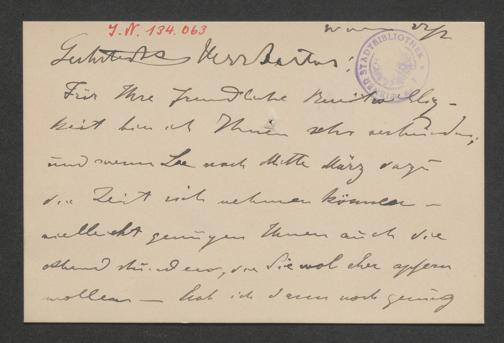 J.N. 134.063
Wien 22/2
Geehrtester Herr Bartus!
Für Ihre freundliche Bereitwillig-
keit bin ich Ihnen sehr verbunden,
und wenn Sie nach Mitte März dazu
die Zeit sich nehmen können –
vielleicht genügen Ihnen auch die
Abendstunden, die Sie wol eher opfern
wollen – hab ich dann noch genug
STADTBIBLIOTHEK